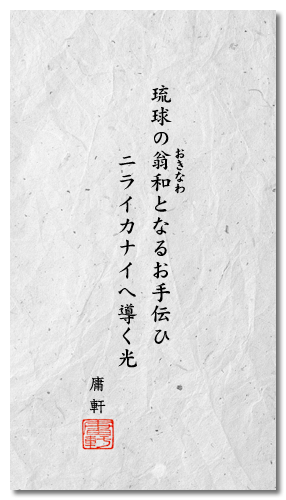 琉球の翁和となるお手伝ひ
おきなわ
ニライカナイへ導く光
庸軒
庸軒